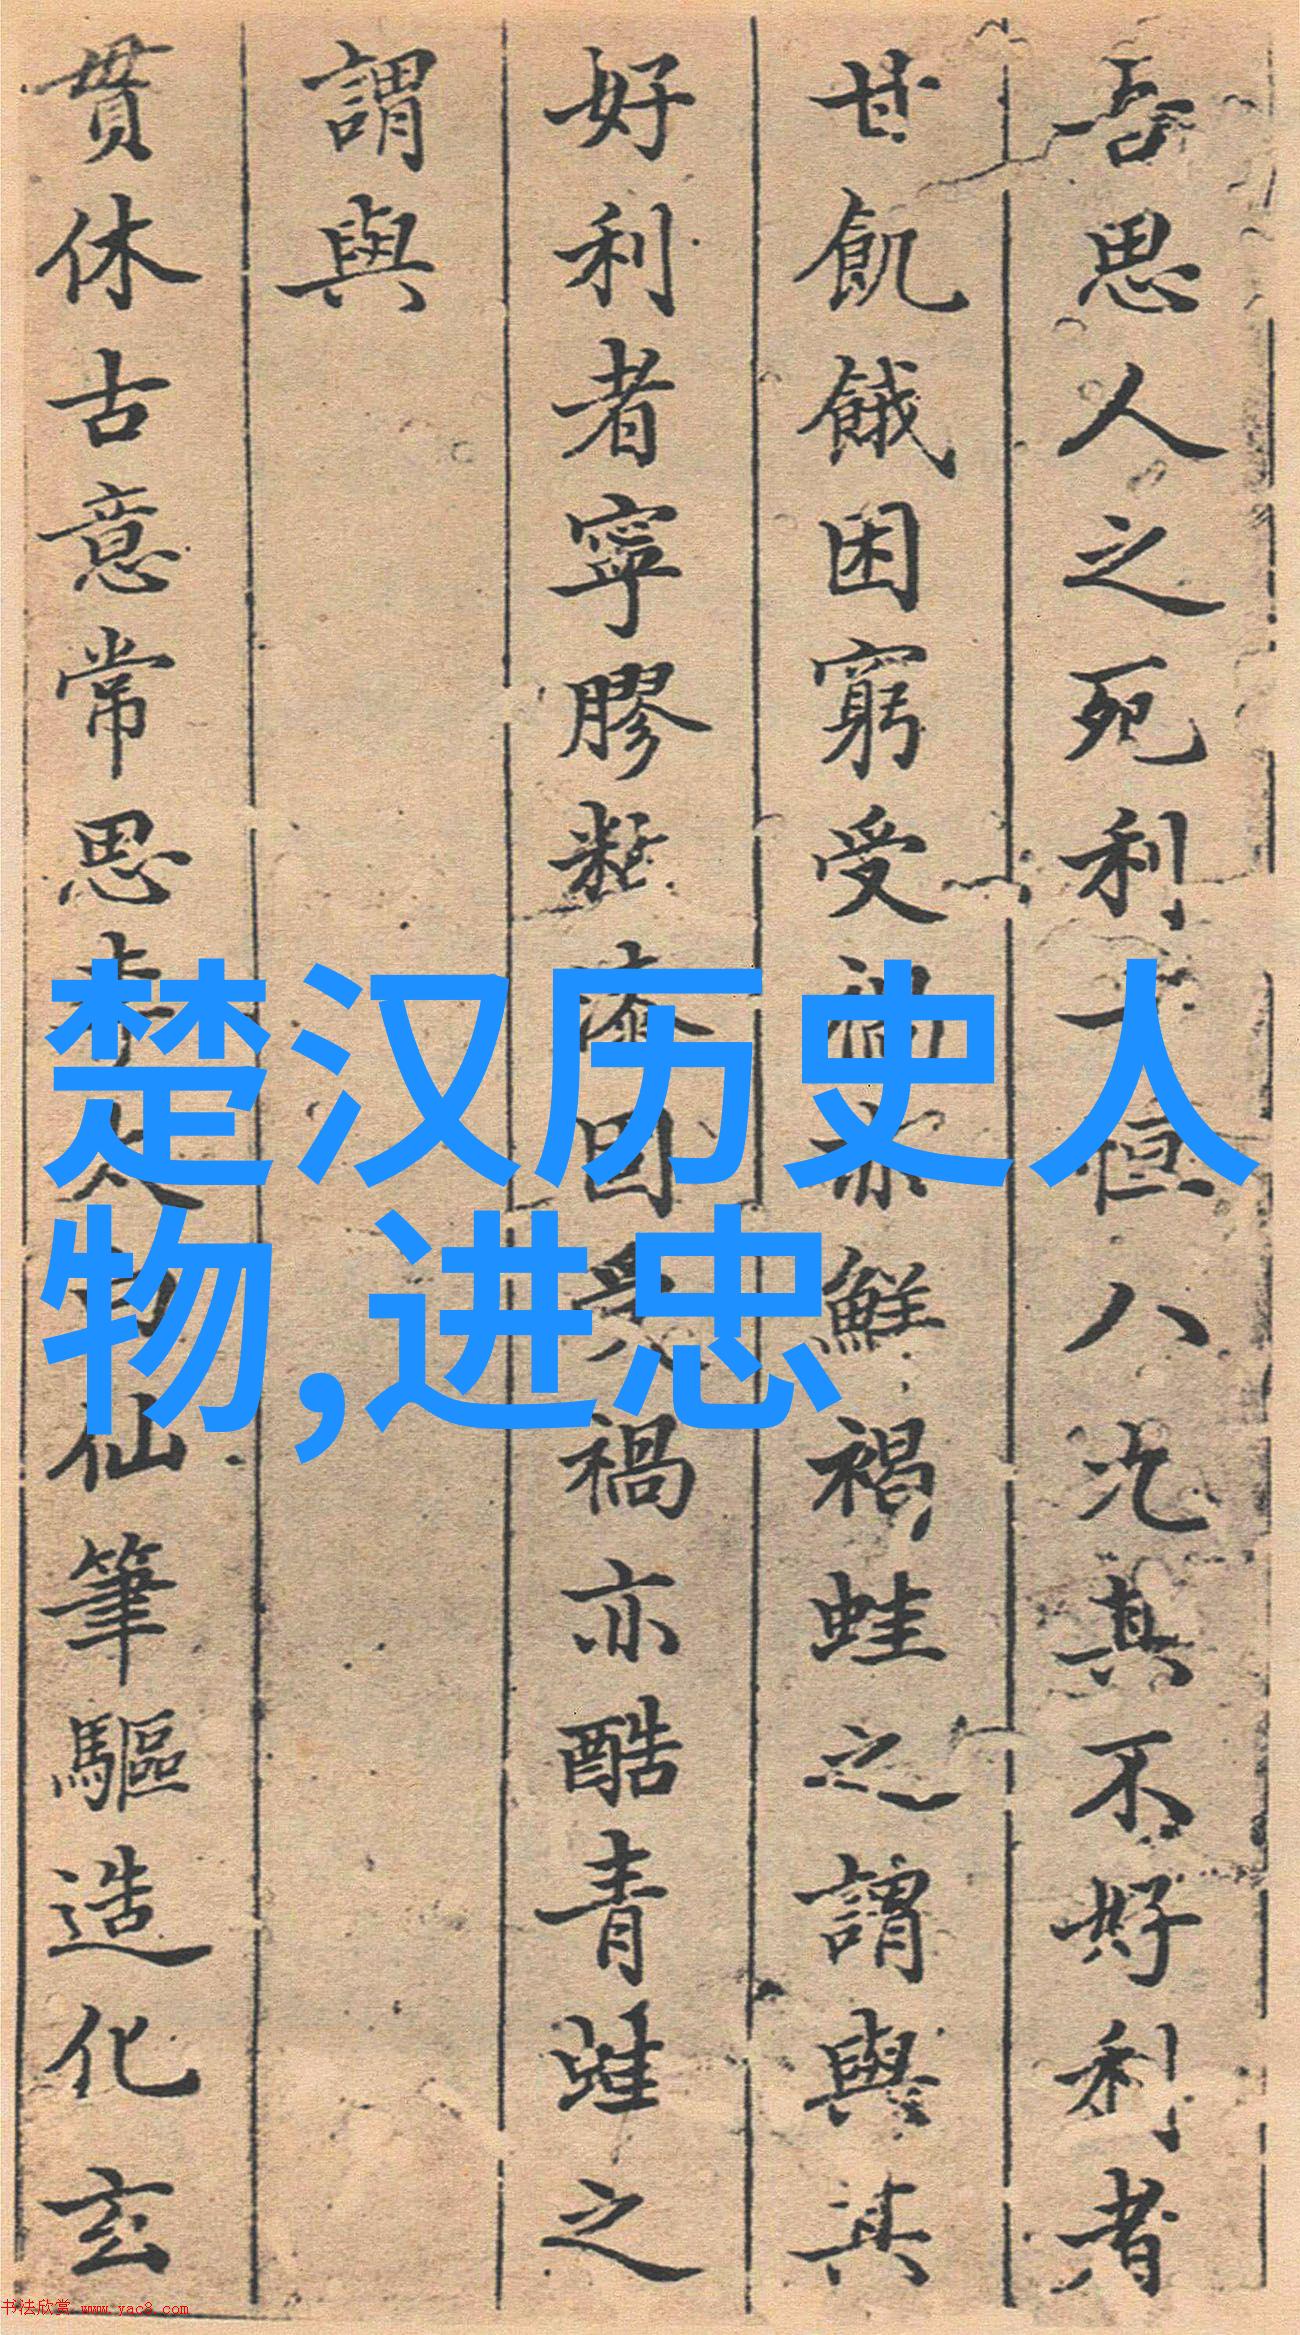 吾思人之死利恒八其不好利者
甘飢餓困窮受禍亦鮮褐蛙之謂與其
好利者寧膠黏漆固受禍亦酷青蛙之
謂與
貫休古意常思李太白仙筆驅造化玄
楚汉历史人
物,进忠
书法欣赏 www.yac8.com